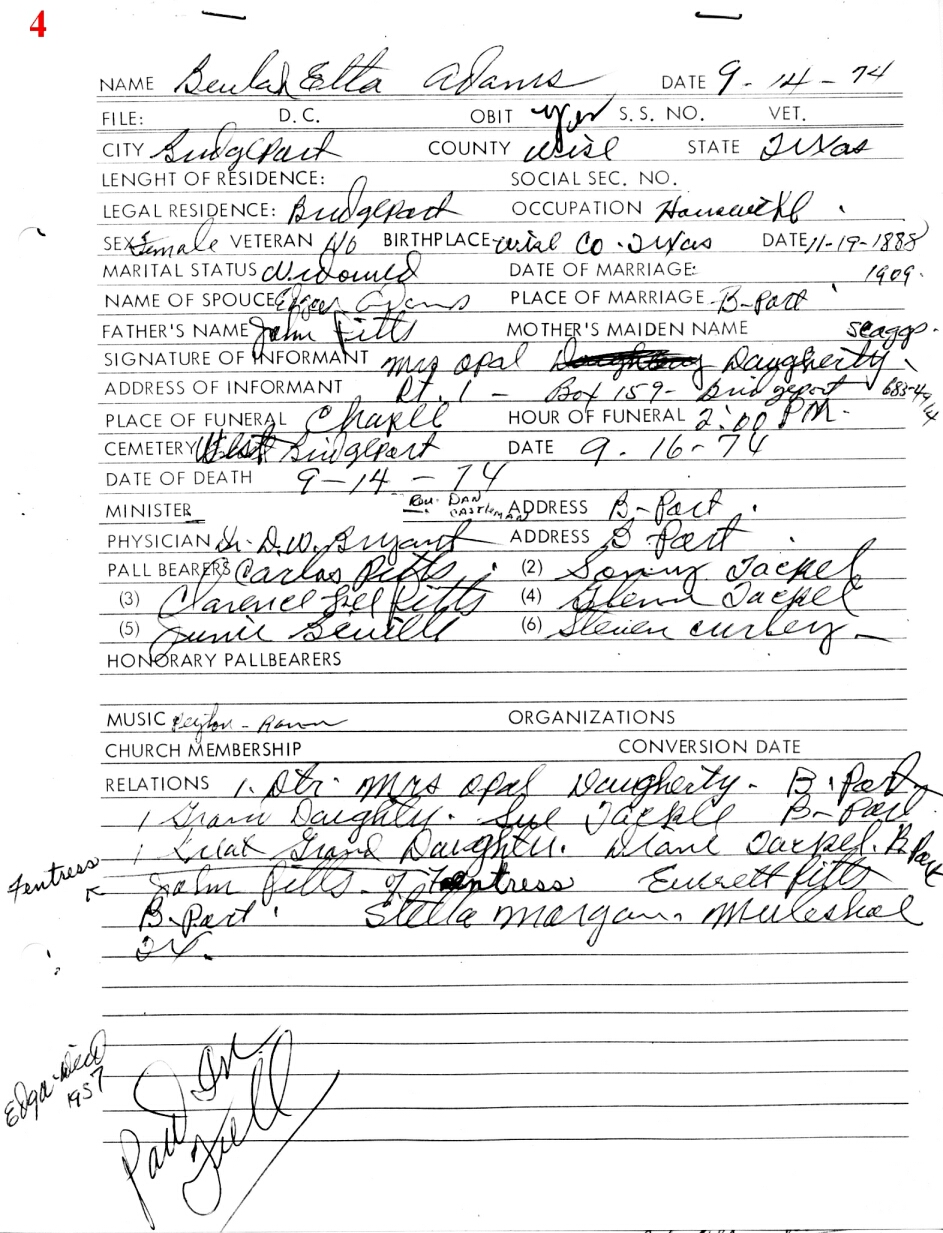 4
NAME Beulah Etta Adams DATE 9-14-74
FILE: D.C. OBIT yes S. S. NO. VET.
CITY Bridgeport COUNTY Wise STATE Texas
LENGHT OF RESIDENCE: SOCIAL SEC. NO.
LEGAL RESIDENCE: Bridgeport OCCUPATION Housewife
SEX Female VETERAN No BIRTHPLACE Wise Co. Texas DATE 11-19-1888
MARITAL STATUS Widowed DATE OF MARRIAGE: 1909
NAME OF SPOUCE Edgar Adams PLACE OF MARRIAGE B-Port
FATHER'S NAME John Pitts MOTHER'S MAIDEN NAME Scaggs
SIGNATURE OF INFORMANT Mrs Opal Daugherty
ADDRESS OF INFORMANT Rt. 1 - Box 159 - Bridgeport 683-4414
PLACE OF FUNERAL Chapel HOUR OF FUNERAL 2:00 PM.
CEMETERY West Bridgeport DATE 9-16-74
DATE OF DEATH 9-14-74
MINISTER Rev. DAN CASTLEMAN ADDRESS B-Port
PHYSICIAN Dr. D.W. Bryant ADDRESS B-Port
PALL BEARERS Carlos Pitts (2) Sonny Jackel
(3) Clarence Lee Pitts (4) Glenn Jackel
(5) Junie (6) Steven Curley
HONORARY PALLBEARERS
MUSIC ORGANIZATIONS
CHURCH MEMBERSHIP CONVERSION DATE
RELATIONS 1. Dtr. Mrs Opal Daugherty - B. Port
1 Grand Daughter. Sue Jackel B-Port
1 Great Grand Daughter. Diane Jackel. B.Port
Fentress John Pitts - of Fentress Everett Pitts
B-Port Stella Morgan. Muleshoe
TX.
Edgar Died
1957
Paid In
Full